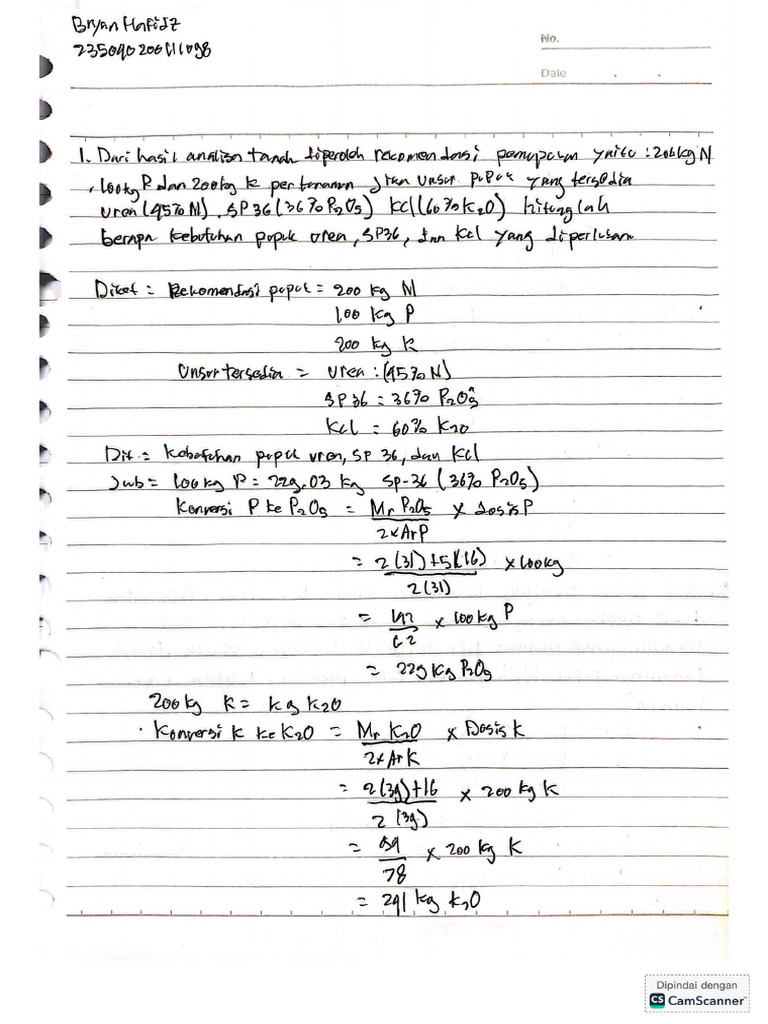 Bryan Hafidz
235090200111098
No.
Date
1. Dari hasil analisa tanah diperoleh rekomendasi pemupukan yaitu : 200 kg N
, 100 kg P dan 200 kg K per tanaman jika unsur pupuk yang tersedia
urea (45% N) , SP36 (36% P2O5) KCl (60% K2O) hitunglah
berapa kebutuhan pupuk urea, SP36, dan KCl yang diperlukan
Diket = Rekomendasi pupuk = 200 kg N
100 kg P
200 kg K
Unsur tersedia = Urea : (45% N)
SP36 = 36% P2O5
KCl = 60% K2O
Dit = Kebutuhan pupuk urea, SP 36, dan KCl
Jwb = 100 kg P = 229.03 kg SP-36 (36% P2O5)
Konversi P ke P2O5 = Mr P2O5 × dosis P
2 × Ar P
= 2 (31) + 5 (16) × 100 kg
2 (31)
= 142 × 100 kg P
62
= 229 kg P2O5
200 kg K = kg K2O
· Konversi K ke K2O = Mr K2O × Dosis K
2 × Ar K
= 2 (39) + 16 × 200 kg K
2 (39)
= × 200 kg K
78
= 241 kg K2O
Dipindai dengan
CS CamScanner